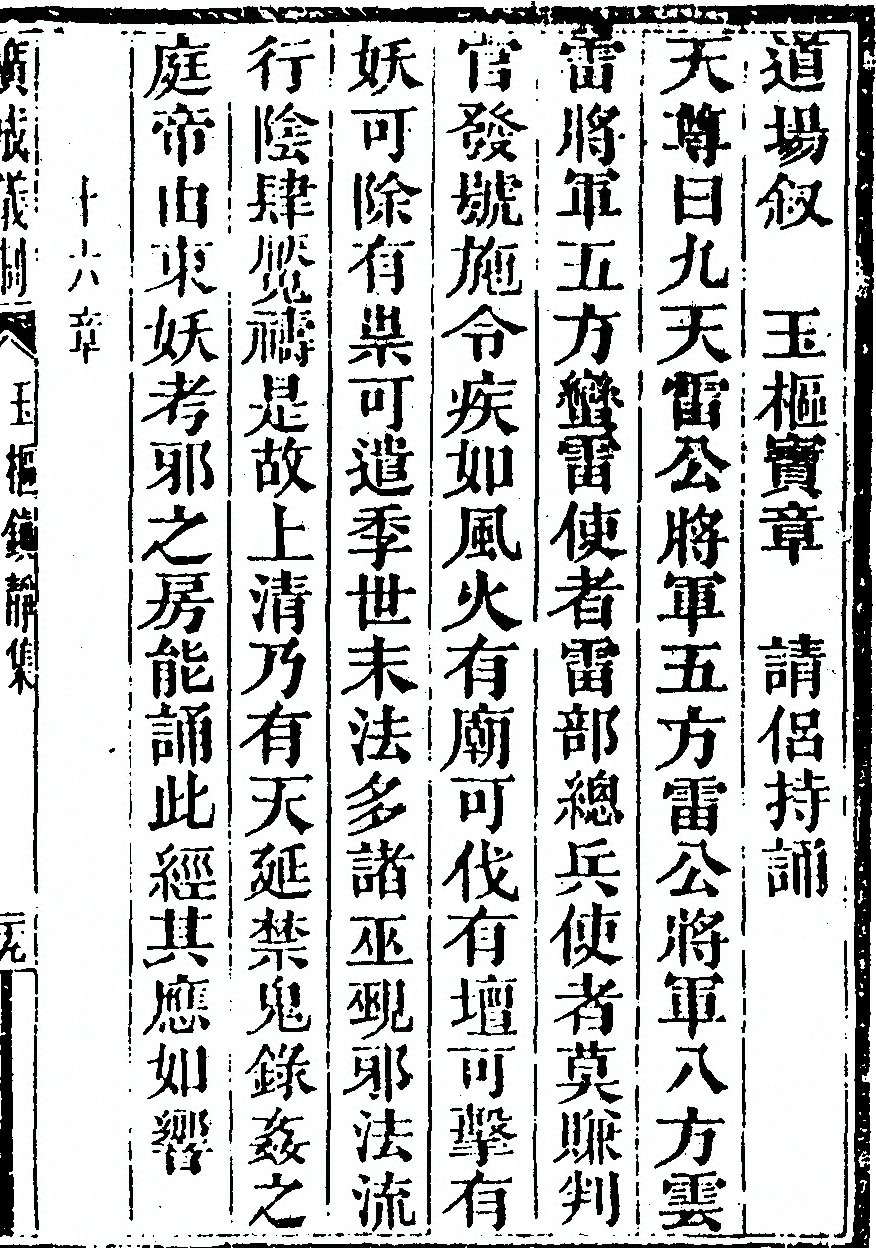 道場叙　玉樞寶章　請侶持誦
天尊曰九天雷公將軍五方雷公將軍八方雲
雷將軍五方蠻雷使者雷部總兵使者莫賺判
官發號施令疾如風火有廟可伐有壇可擊有
妖可除有祟可遣季世末法多諸巫覡邪法流
行陰肆魘禱是故上清乃有天延禁鬼錄姦之
庭帝由束妖考邪之房能誦此經其應如響
十六章
廣成儀制　玉樞鎮靜集